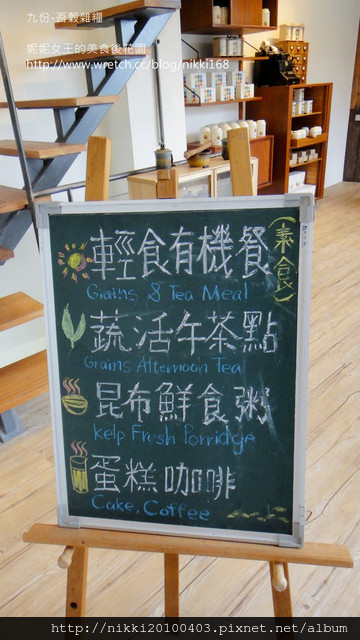 九份-吾穀雜糧
妮妮女王的美食後花園
http://www.wretch.cc/blog/nikki168
輕食有機餐(素食)
Grains & Tea Meal
蔬活午茶點
Grains Afternoon Tea
昆布鮮食粥
kelp Fresh Porridge
蛋糕咖啡
Cake, Coffee
http://nikki20100403.pixnet.net/album